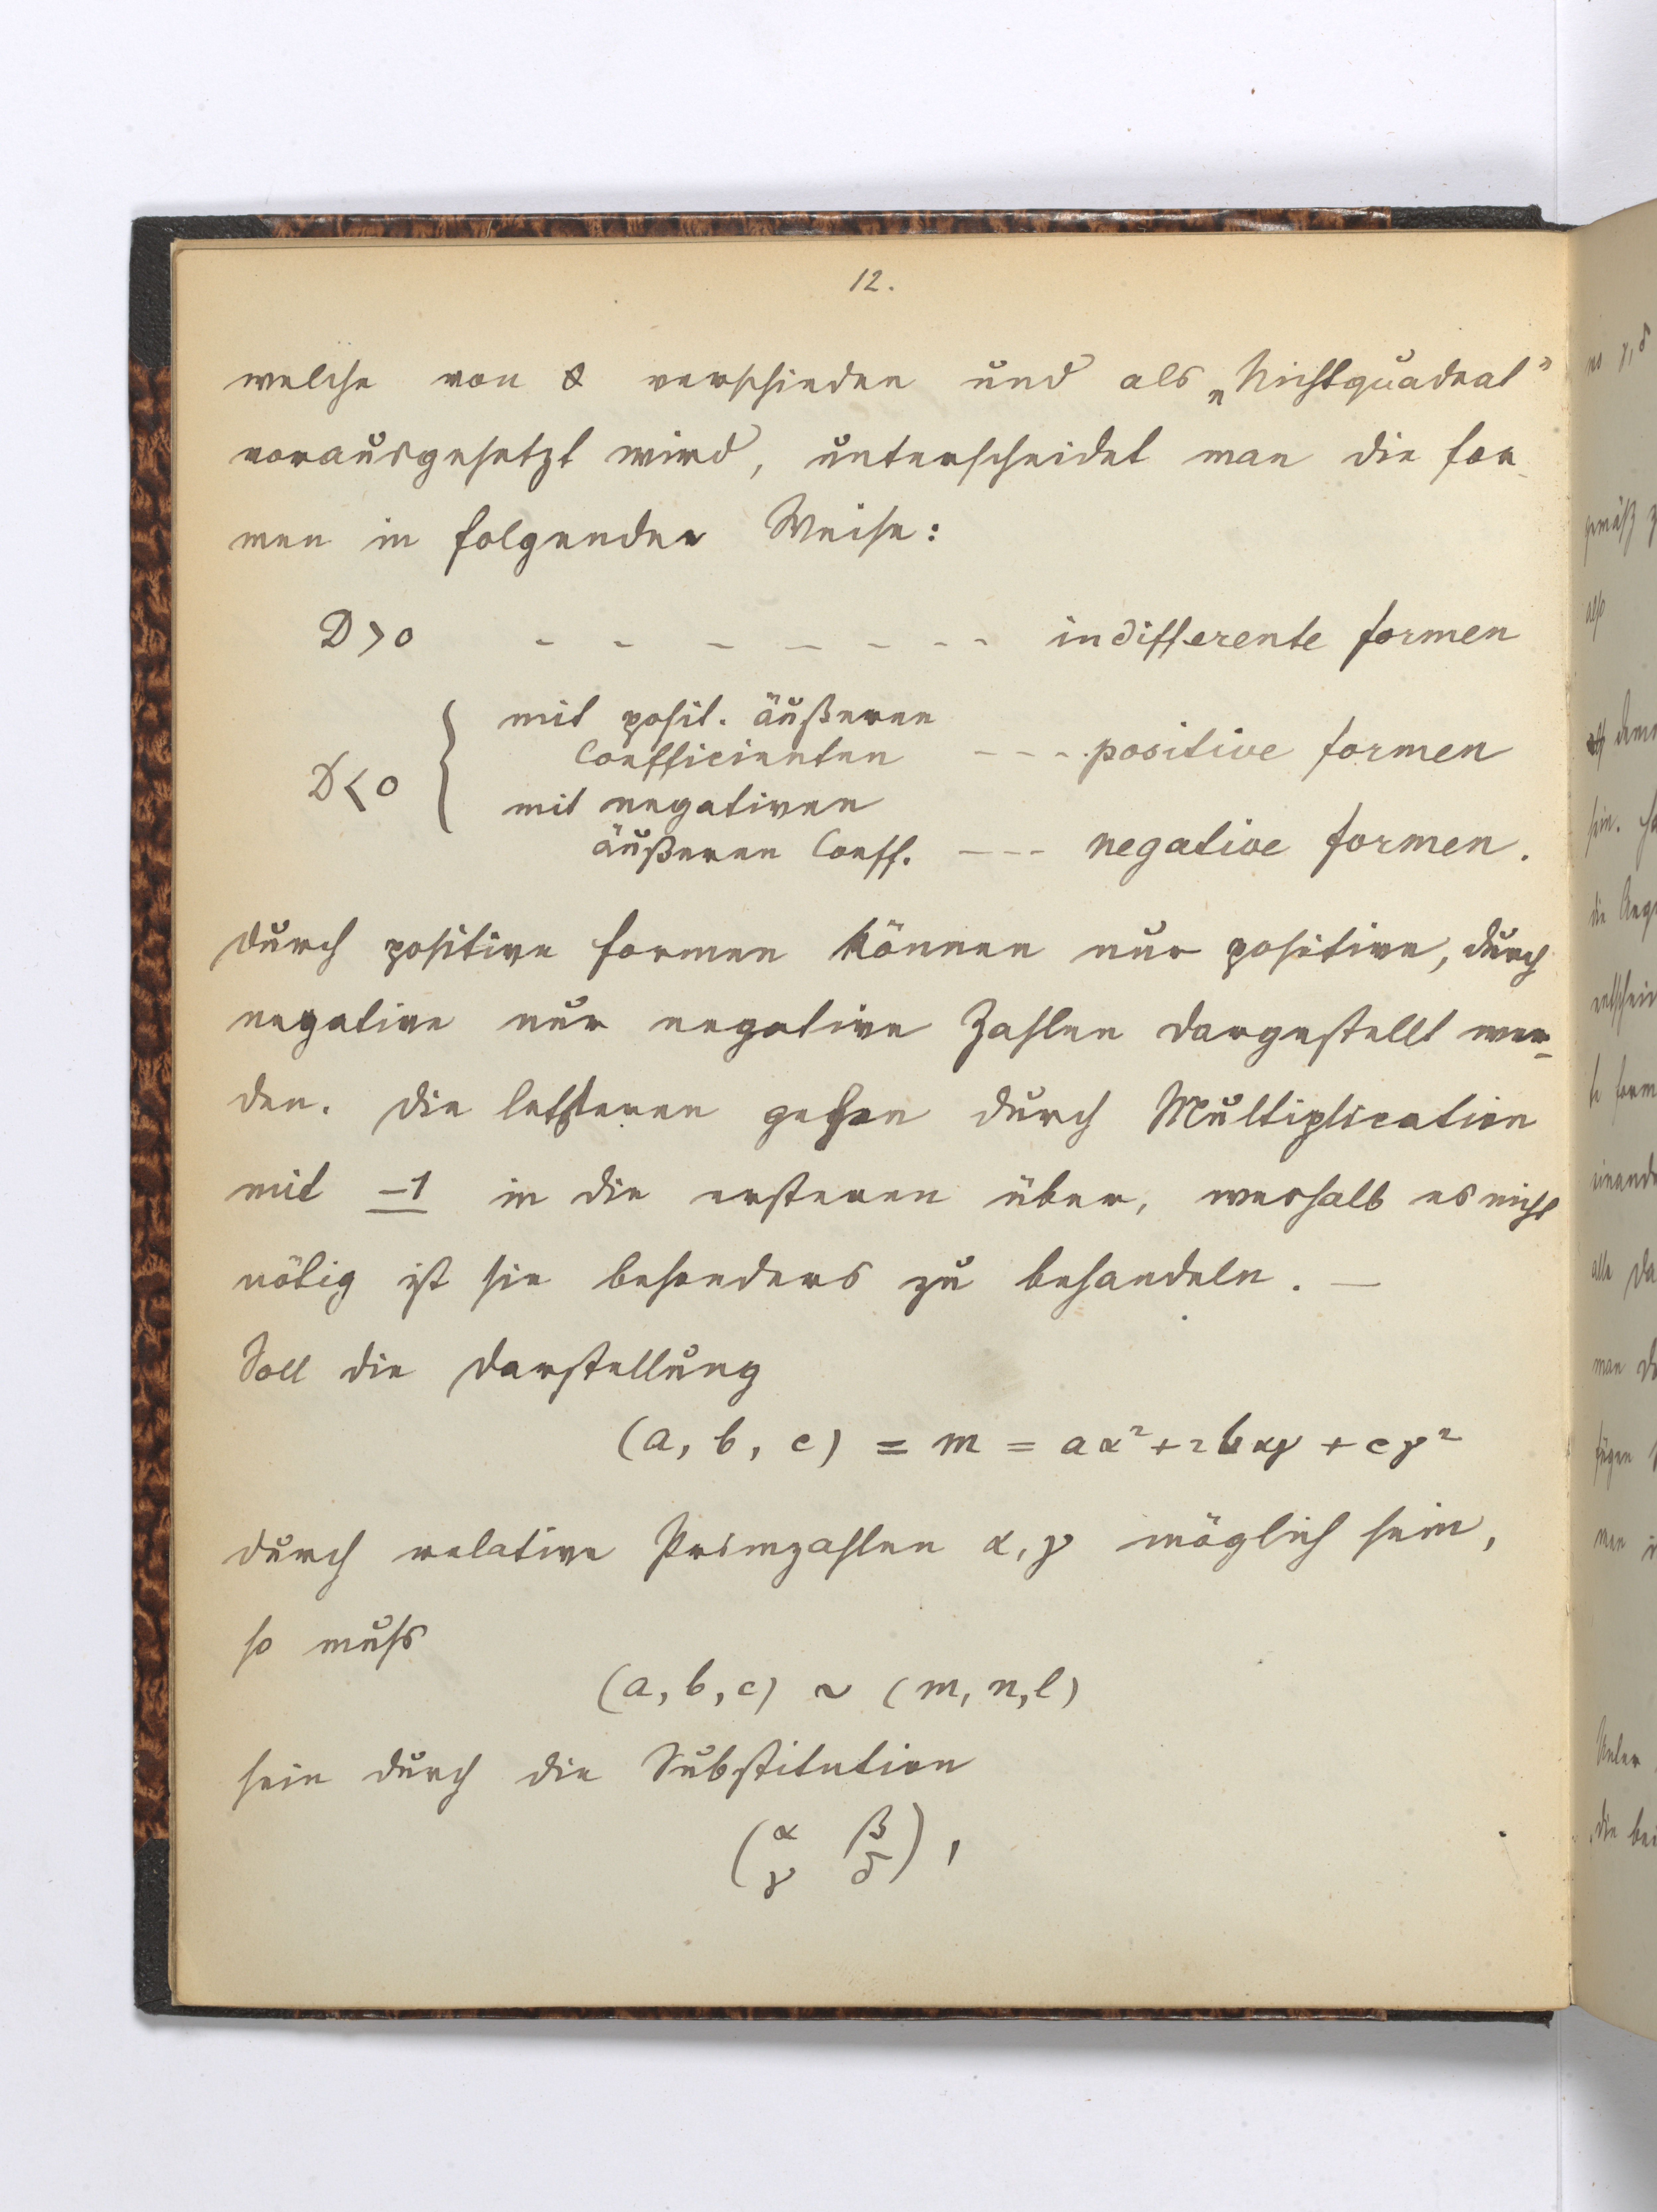 12.
welche von 0 verschieden und als „Nichtquadrat"
vorausgesetzt wird, unterscheidet man die For-
men in folgender Weise:
D>0 - - - - - - - - indifferente Formen
mit posit. äußeren
Coefficienten - - - - positive Formen
D<0
mit negativen
äußeren Coeff. - - - negative Formen.
Durch positive Formen können nur positive, durch
negative nur negative Zahlen dargestellt wer-
den. Die letzteren gehen durch Multiplication
mit -1 in die ersteren über, weshalb es nicht
nötig ist sie besonders zu behandeln. —
Soll die Darstellung
(a, b, c) = m = aα²+2bαγ + cγ²
durch relative Primzahlen α, γ möglich sein,
so muss
(a, b, c) ~ (m, n, l)
sein durch die Substitution
(α β
γ δ),